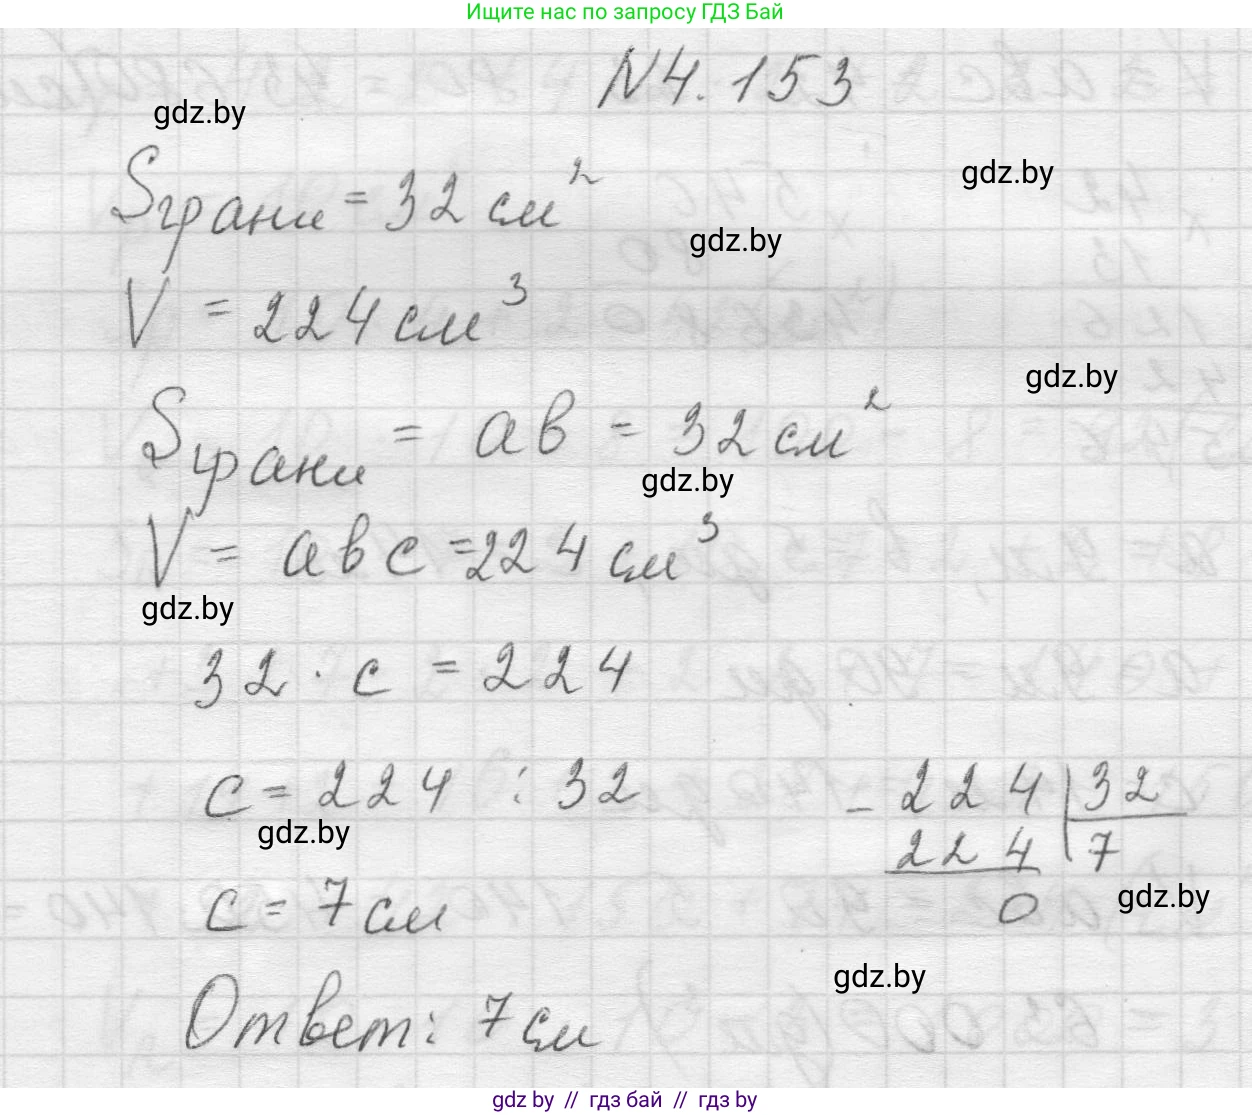 Ищите нас по запросу ГДЗ Бай
N4.153
gdz.by
Sграни = 32 см²
gdz.by
gdz.by
V = 224 см³
gdz.by
Sграни = ab = 32 см²
gdz.by
V = abc = 224 см³
gdz.by
32 · c = 224
c = 224 : 32
- 224 | 32
gdz.by
224 7
c = 7 см
0
gdz.by
gdz.by
Ответ: 7 см
gdz.by // гдз бай // гдз by